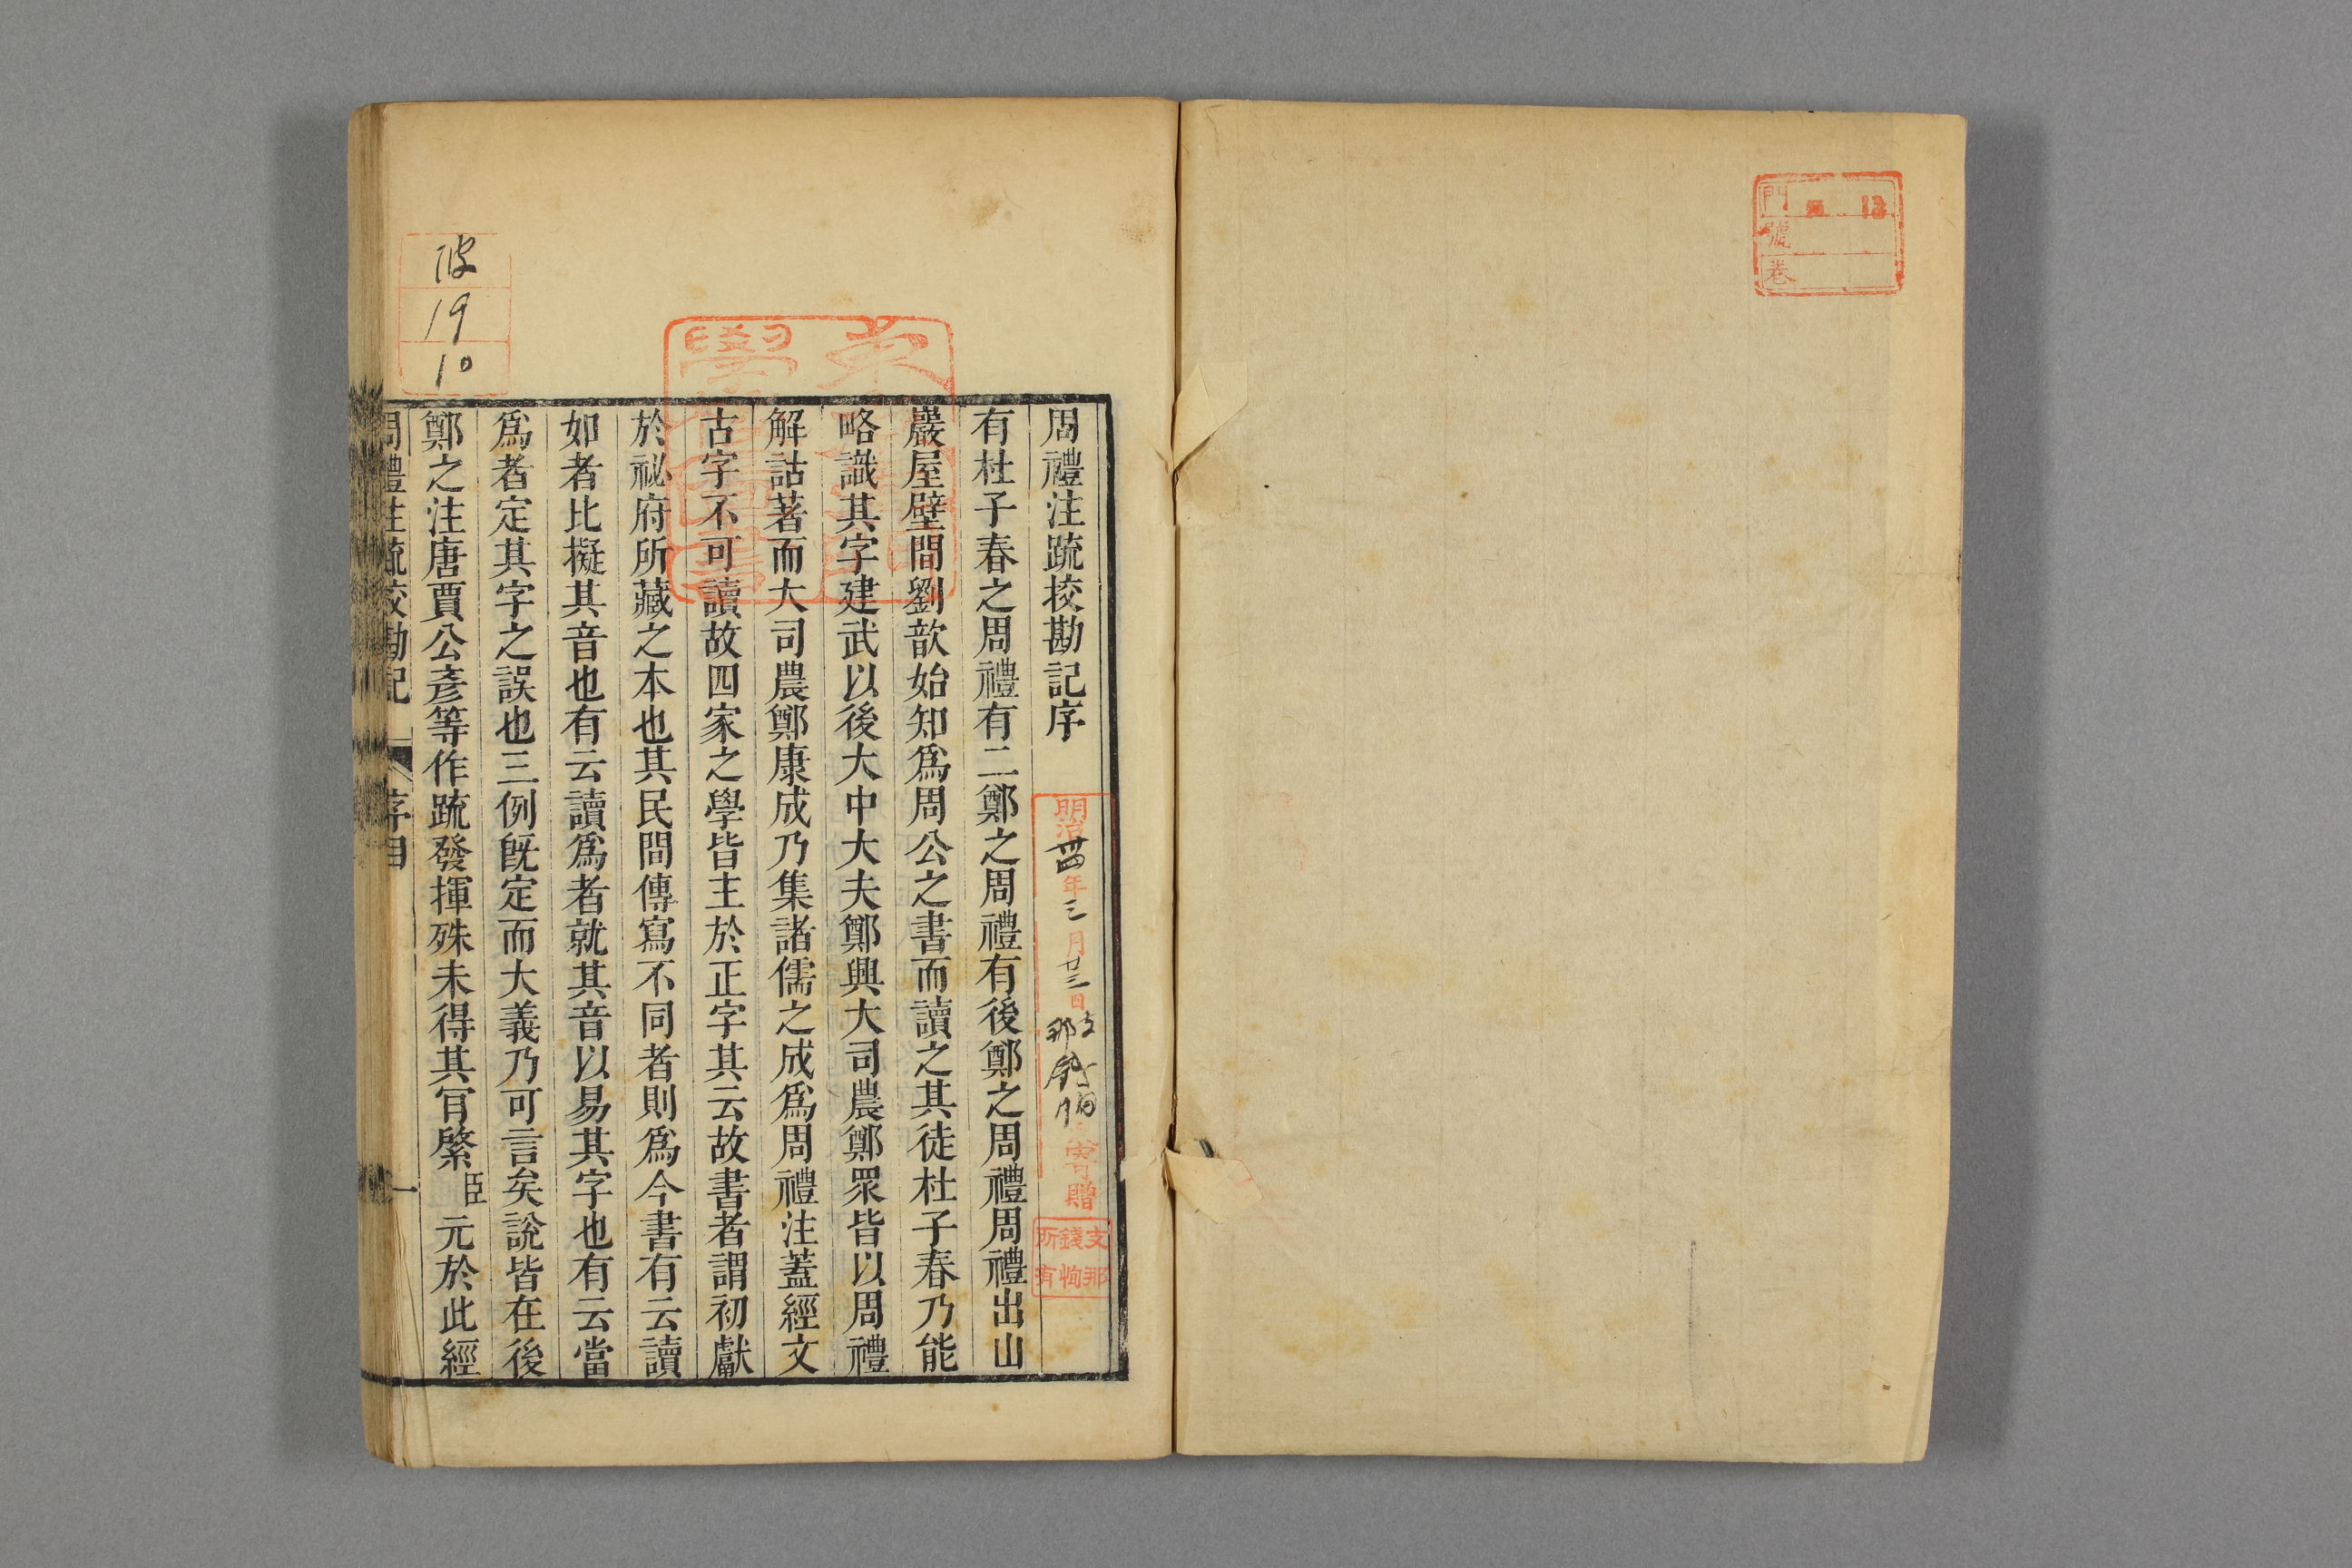 門
號
卷
13
周禮注䟽挍勘記序
有杜子春之周禮有二鄭之周禮有後鄭之周禮周禮出山
巖屋壁間劉歆始知爲周公之書而讀之其徒杜子春乃能
略識其字建武以後大中大夫鄭興大司農鄭眾皆以周禮
解詁著而大司農鄭康成乃集諸儒之成爲周禮注蓋經文
古字不可讀故四家之學皆主於正字其云故書者謂初獻
於祕府所藏之本也其民間傳寫不同者則爲今書有云讀
如者比擬其音也有云讀爲者就其音以易其字也有云當
爲者定其字之誤也三例旣定而大義乃可言矣說皆在後
鄭之注唐賈公彥等作䟽發揮殊未得其肎綮臣元於此經
周禮注䟽校勘記 序目 一
明治廿四年三月廿三日支那錢恂寄贈
支那
錢恂
所有
19
10